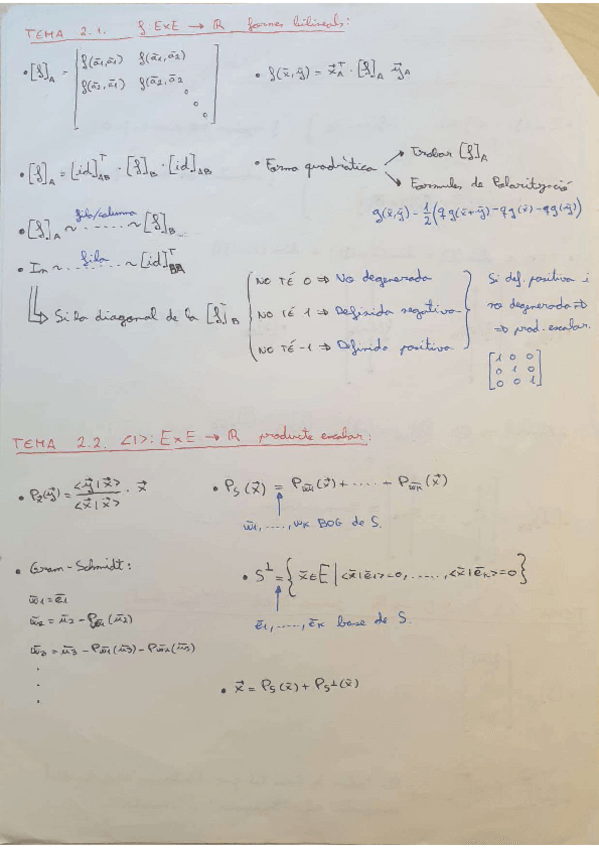 TEMA 2.1. f: ExE → ℝ formes bilineals:
• [f]_A = [f(ā1,ā1) f(ā1,ā2)
f(ā2,ā1) f(ā2,ā2)
° ° °]
• f(x̄,ȳ) = x̄_A^T · [f]_A ȳ_A
• [f]_A = [id]_AB^T · [f]_B · [id]_AB
• Forma quadràtica → Trobar [f]_A
→ Formules de Polarització
g(x̄,ȳ) = 1/2 (qg(x̄+ȳ) - qg(x̄) - qg(ȳ))
• [f]_A ~ fila/columna ~ [f]_B
• In ~ fila ~ [id]_BA^T
↳ Si la diagonal de la [f]_B
NO TÉ 0 ⇒ No degenerada
NO TÉ 1 ⇒ Definida negativa
NO TÉ -1 ⇒ Definida positiva
Si def. positiva i
no degenerada ⇒
⇒ prod. escalar.
[1 0 0
0 1 0
0 0 1]
TEMA 2.2. <|>: ExE → ℝ producte escalar:
• P_x̄(ȳ) = <ȳ|x̄> / <x̄|x̄> · x̄
• P_S(x̄) = P_w̄1(x̄) + ..... + P_w̄k(x̄)
w̄1, ....., w̄k BOG de S.
• Gram-Schmidt:
w̄1 = ē1
w̄2 = ū2 - P_ē1(ū2)
w̄3 = ū3 - P_w̄1(ū3) - P_w̄2(ū3)
.
.
.
• S^⊥ = { x̄ ∈ E | <x̄|ē1> = 0, ....., <x̄|ēk> = 0 }
ē1, ....., ēk base de S.
• x̄ = P_S(x̄) + P_S⊥(x̄)